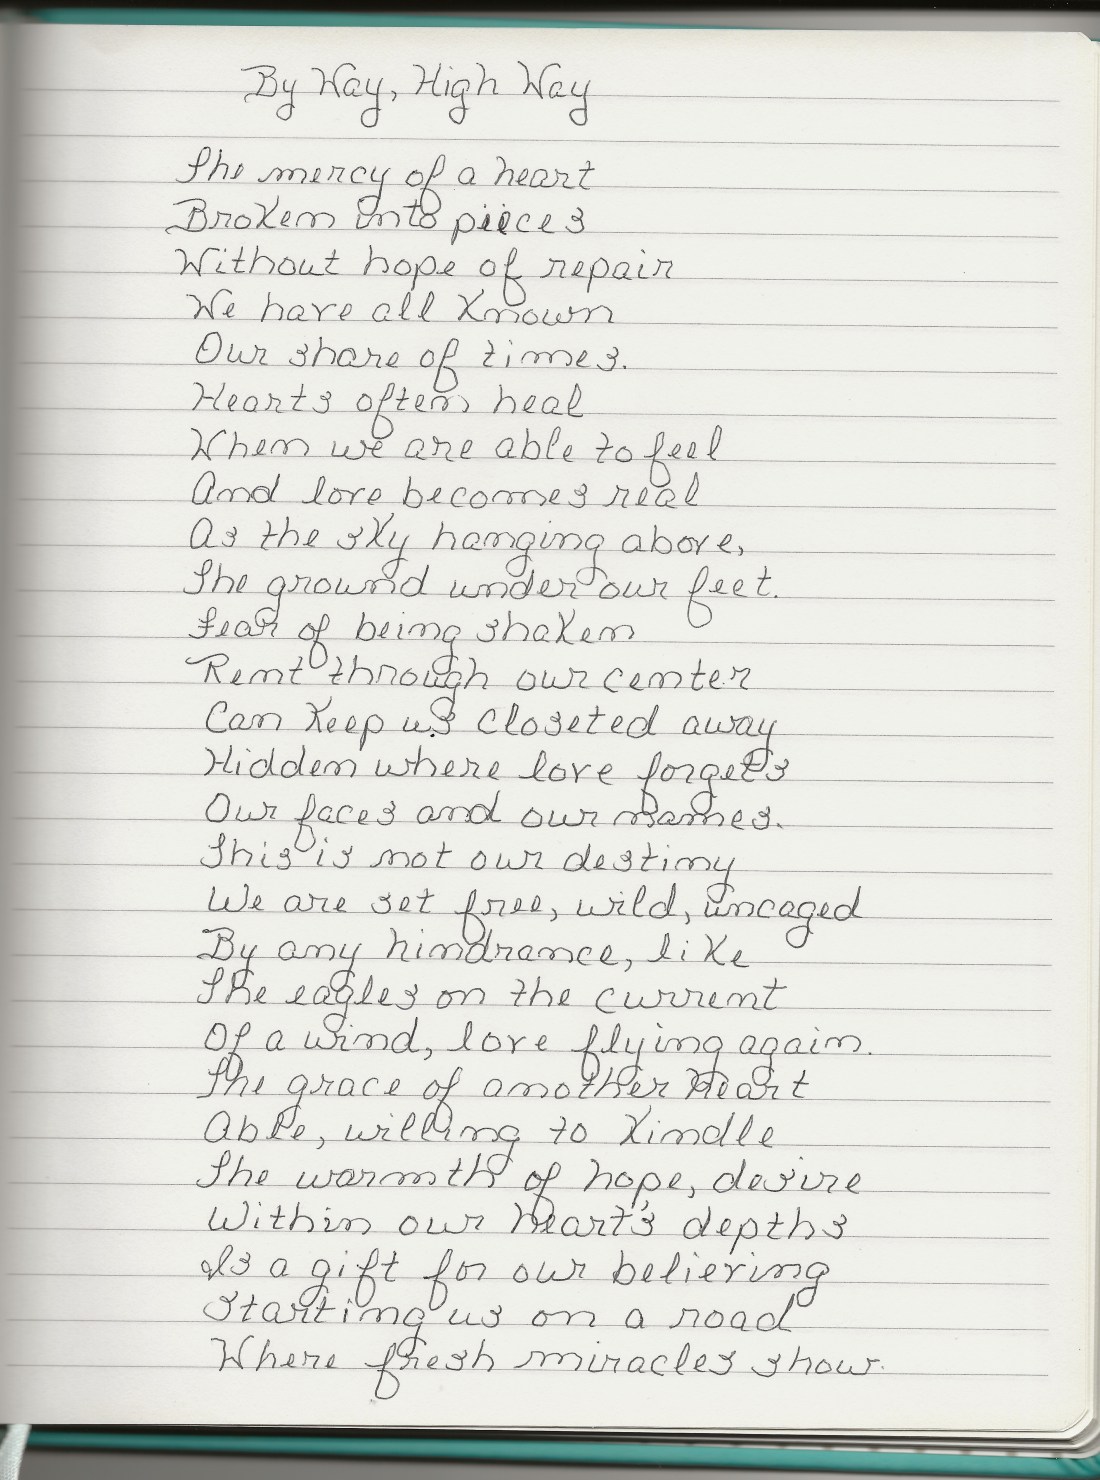 By Way, High Way
The mercy of a heart
Broken into pieces
Without hope of repair
We have all known
Our share of times.
Hearts often heal
When we are able to feel
And love becomes real
As the sky hanging above,
The ground under our feet.
Fear of being shaken
Rent through our center
Can keep us closeted away
Hidden where love forgets
Our faces and our names.
This is not our destiny
We are set free, wild, uncaged
By any hindrance, like
The eagles on the current
Of a wind, love flying again.
The grace of another heart
Able, willing to kindle
The warmth of hope, desire
Within our heart's depths
Is a gift for our believing
Starting us on a road
Where fresh miracles show.